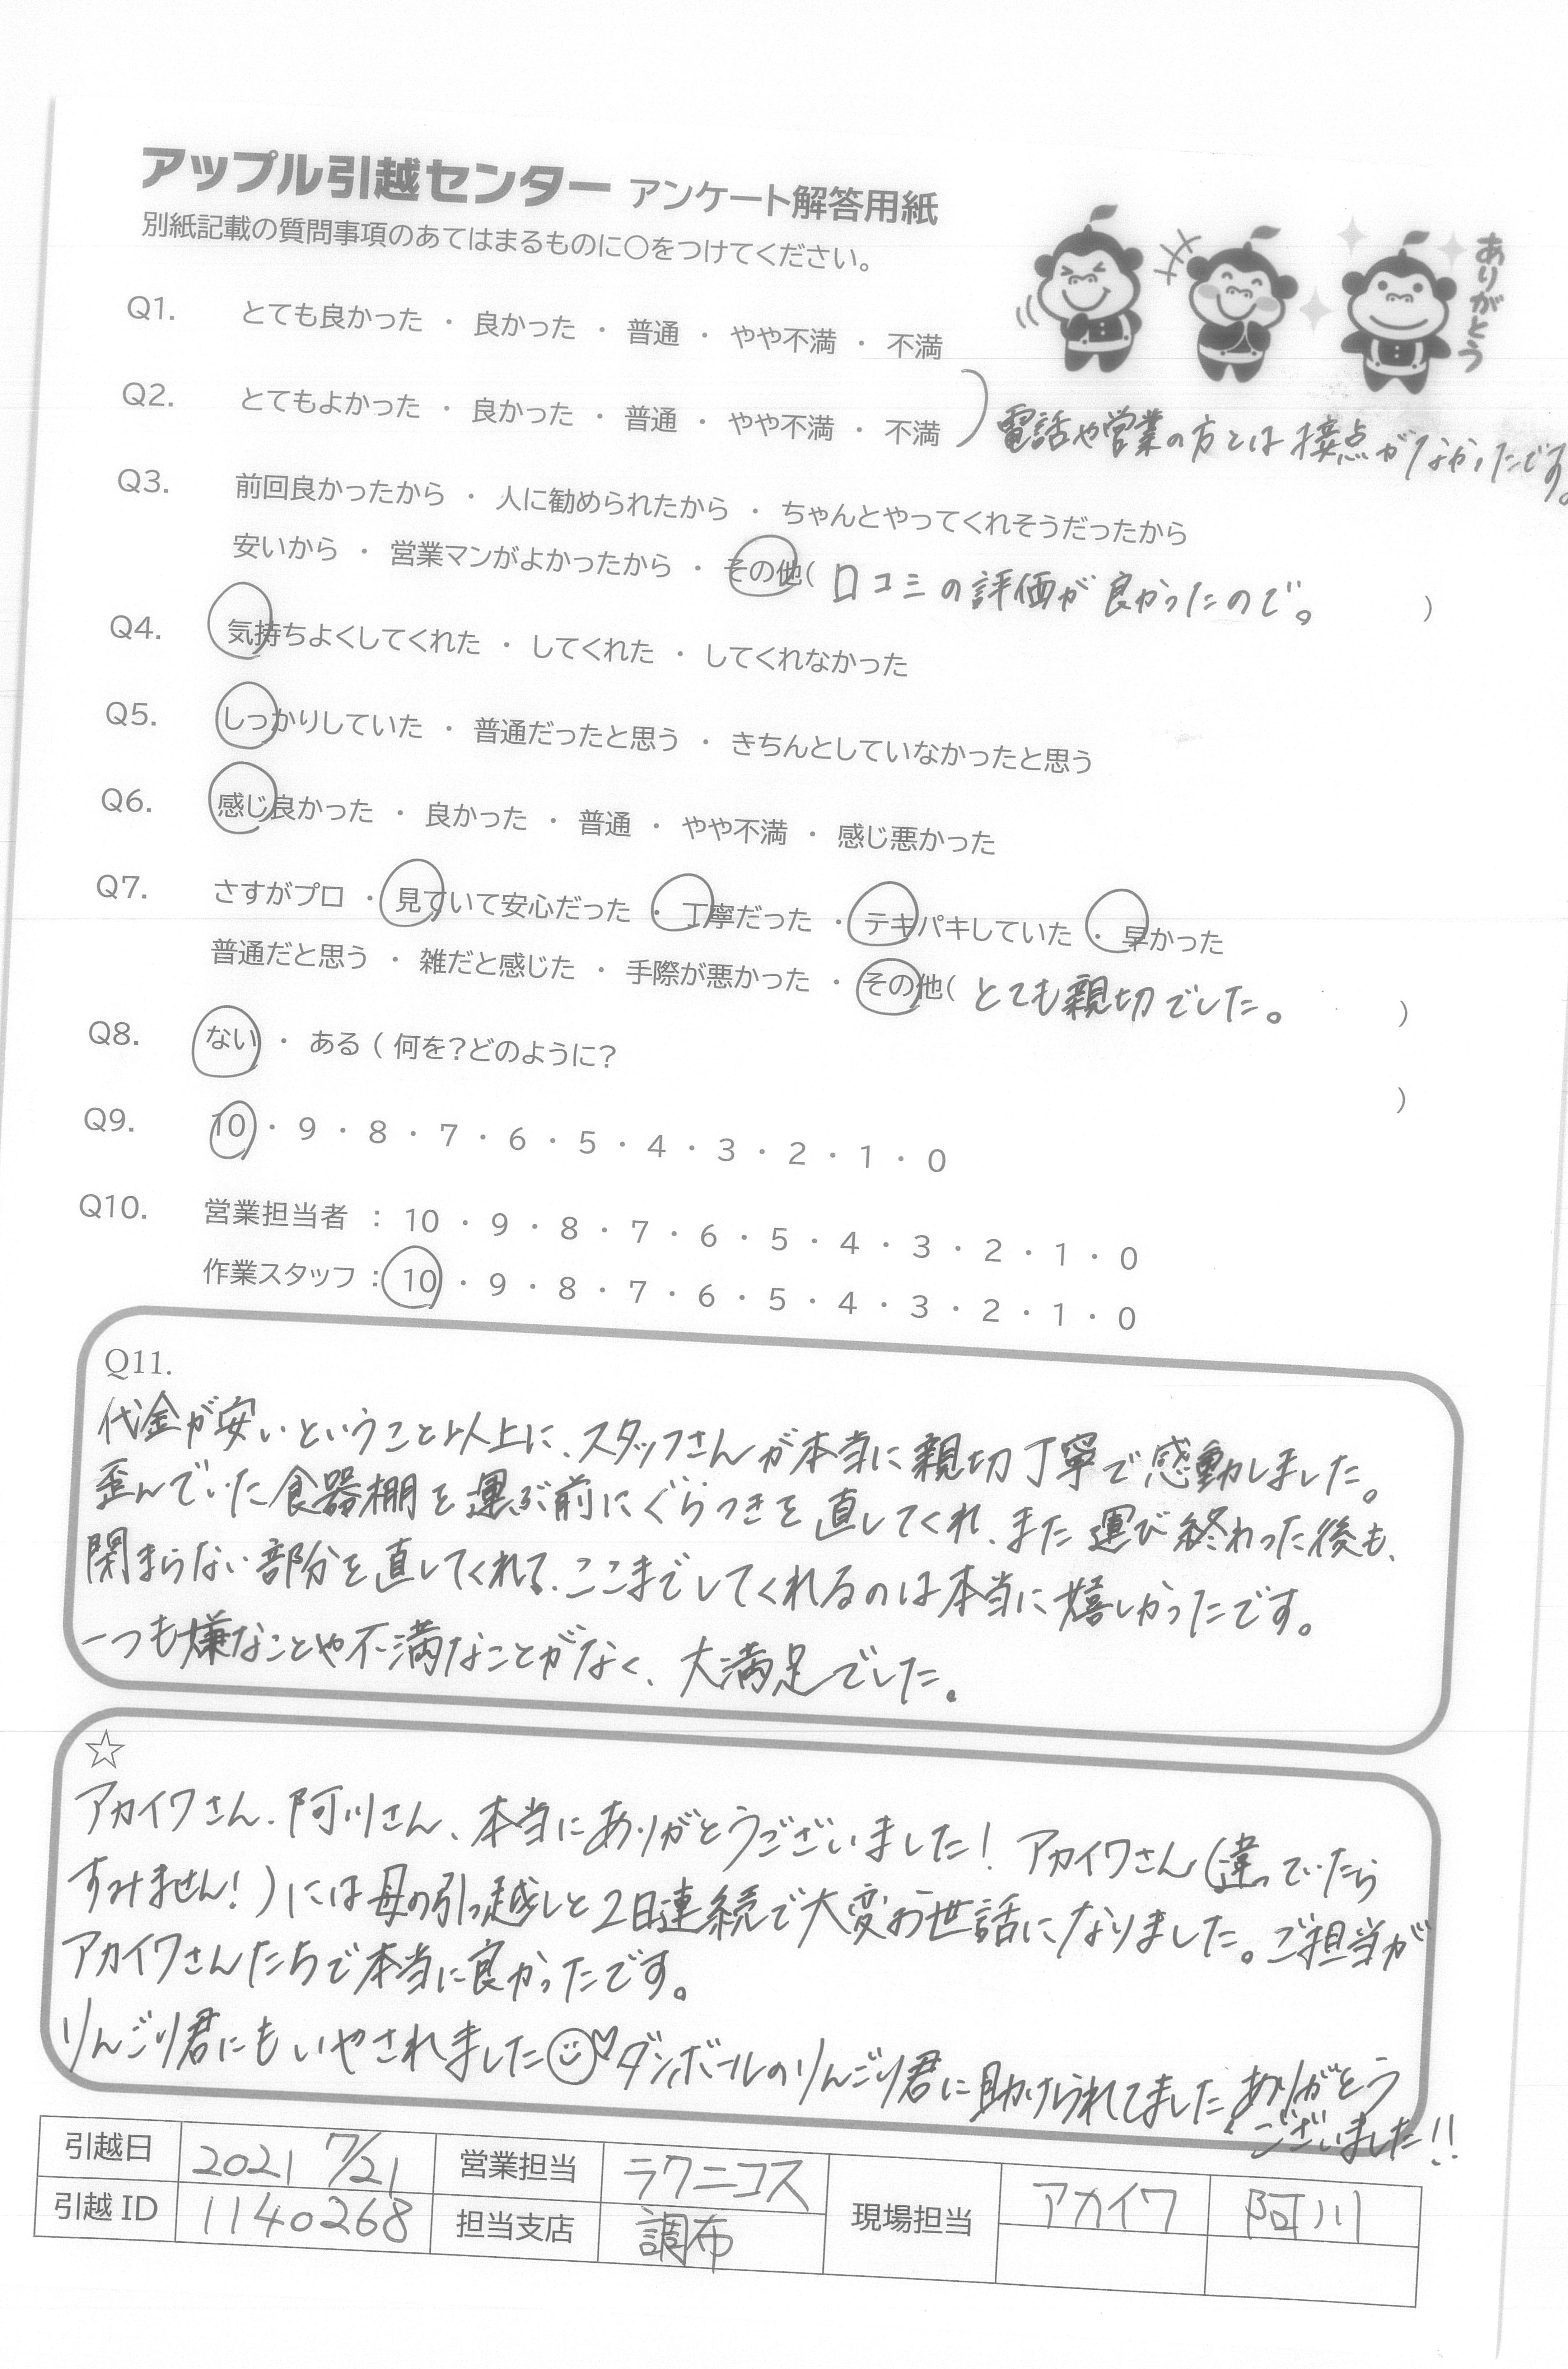 アップル引越センター アンケート解答用紙
別紙記載の質問事項のあてはまるものに〇をつけてください。
ありがとう
Q1. とても良かった ・ 良かった ・ 普通 ・ やや不満 ・ 不満
Q2. とてもよかった ・ 良かった ・ 普通 ・ やや不満 ・ 不満
電話や営業の方とは接点がなかったです。
Q3. 前回良かったから ・ 人に勧められたから ・ ちゃんとやってくれそうだったから
安いから ・ 営業マンがよかったから ・ その他( 口コミの評価が良かったので。 )
Q4. 気持ちよくしてくれた ・ してくれた ・ してくれなかった
Q5. しっかりしていた ・ 普通だったと思う ・ きちんとしていなかったと思う
Q6. 感じ良かった ・ 良かった ・ 普通 ・ やや不満 ・ 感じ悪かった
Q7. さすがプロ ・ 見ていて安心だった ・ 丁寧だった ・ テキパキしていた ・ 早かった
普通だと思う ・ 雑だと感じた ・ 手際が悪かった ・ その他( とても親切でした。 )
Q8. ない ・ ある ( 何を?どのように? )
Q9. 10 ・ 9 ・ 8 ・ 7 ・ 6 ・ 5 ・ 4 ・ 3 ・ 2 ・ 1 ・ 0
Q10. 営業担当者 : 10 ・ 9 ・ 8 ・ 7 ・ 6 ・ 5 ・ 4 ・ 3 ・ 2 ・ 1 ・ 0
作業スタッフ : 10 ・ 9 ・ 8 ・ 7 ・ 6 ・ 5 ・ 4 ・ 3 ・ 2 ・ 1 ・ 0
Q11.
代金が安いということ以上に、スタッフさんが本当に親切丁寧で感動しました。
歪んでいた食器棚を運ぶ前にぐらつきを直してくれ、また運び終わった後も、
閉まらない部分を直してくれる、ここまでしてくれるのは本当に嬉しかったです。
一つも嫌なことや不満なことがなく、大満足でした。
☆
アカイワさん、阿川さん、本当にありがとうございました! アカイワさん(違っていたら
すみません!)には母の引っ越しと2日連続で大変お世話になりました。ご担当が
アカイワさんたちで本当に良かったです。
りんごり君にもいやされました☺♡ダンボールのりんごり君に助けられてました。ありがとう
ございました!!
引越日 2021 7/21 営業担当 ラクニコス 現場担当 アカイワ 阿川
引越 ID 1140268 担当支店 調布